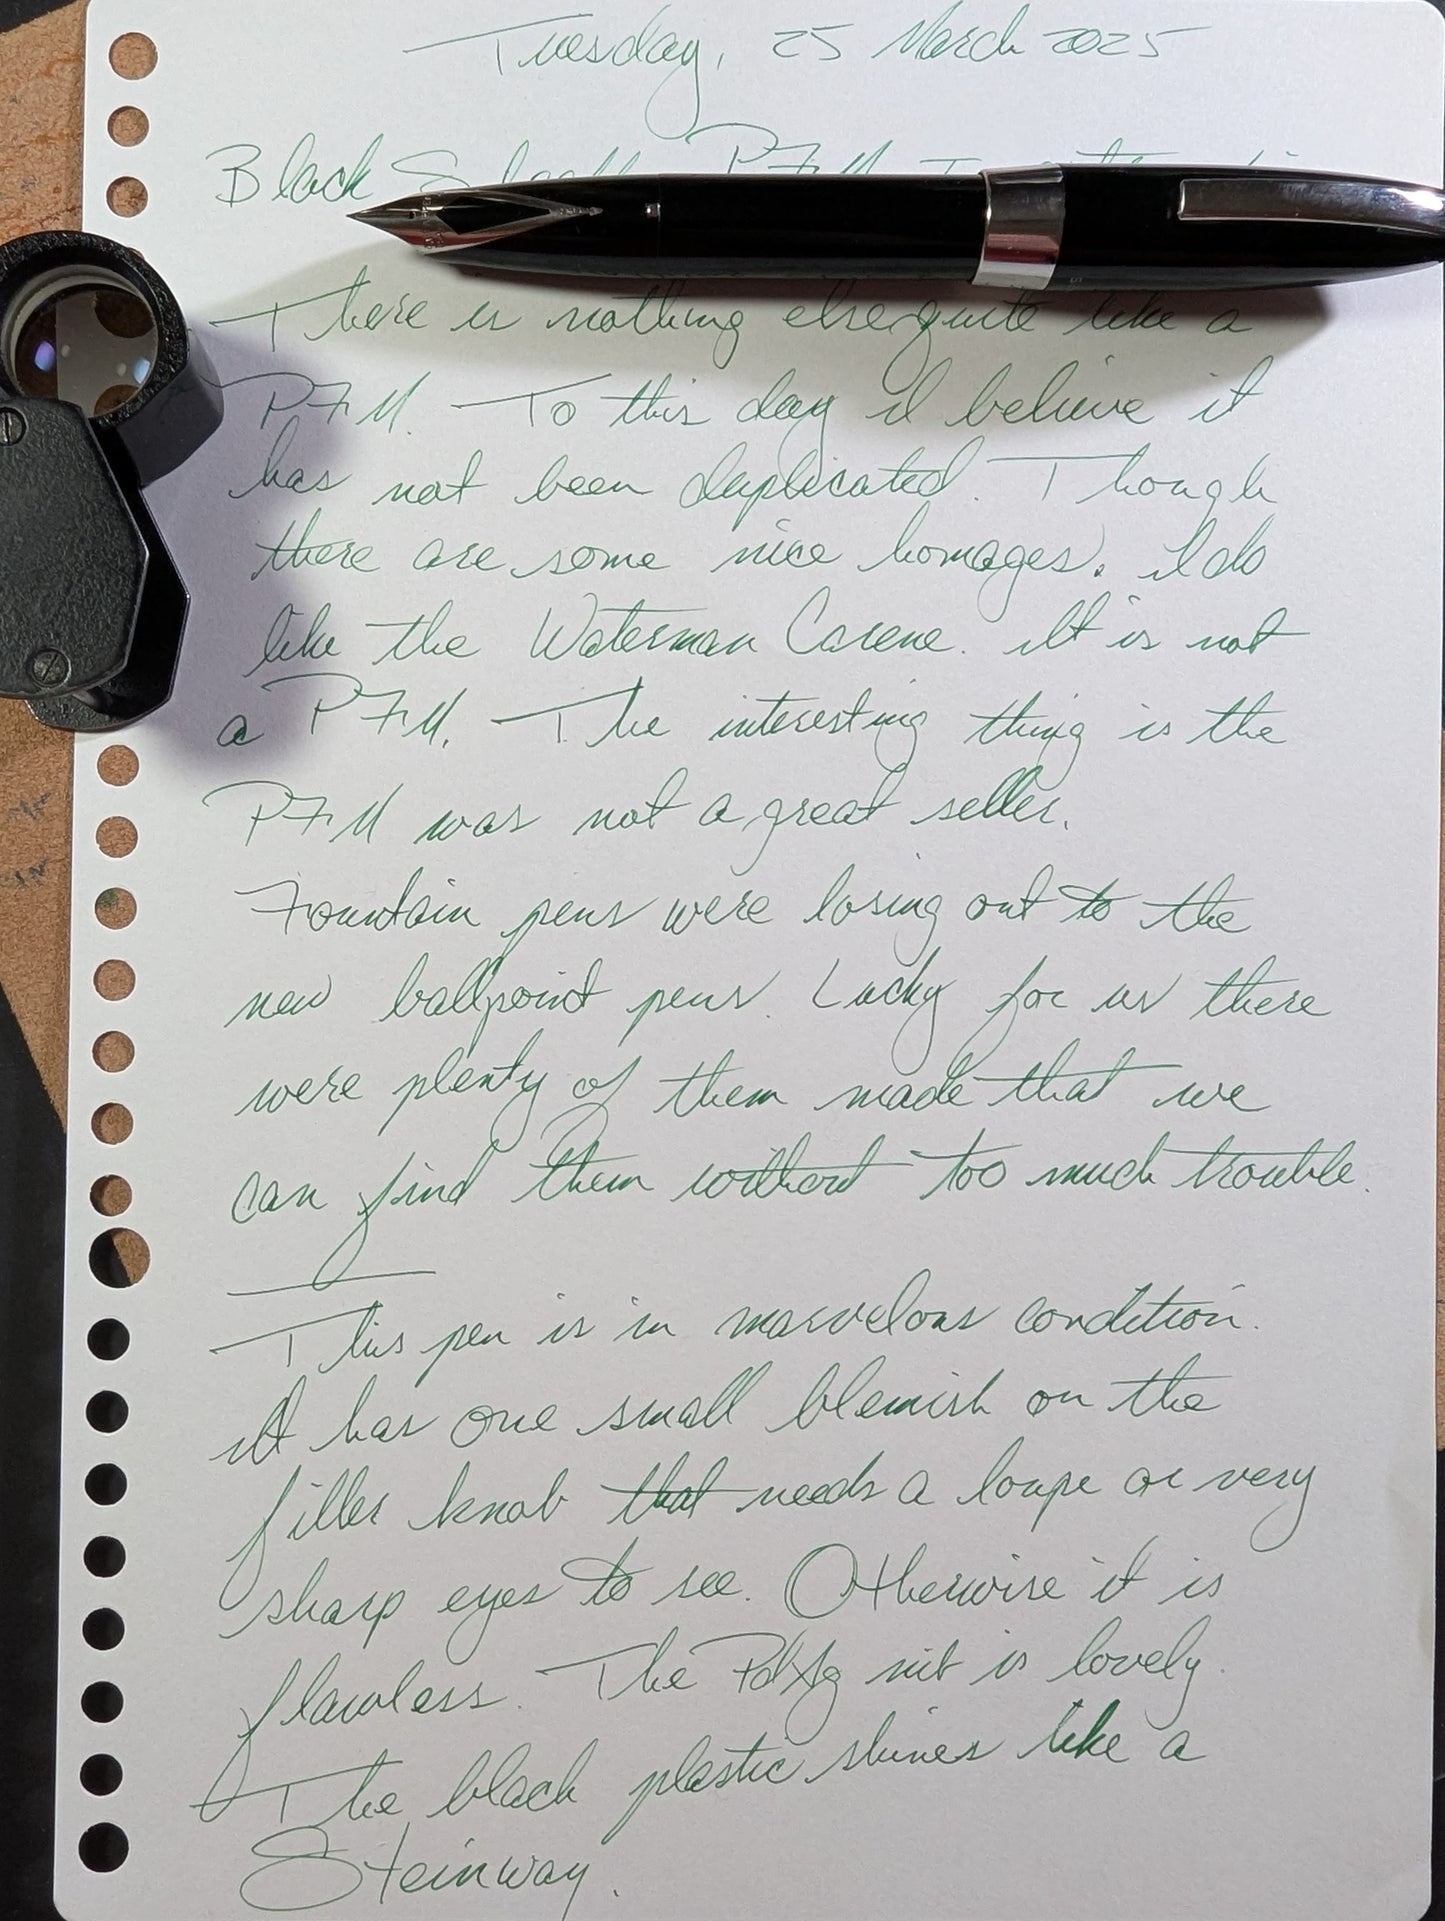 Tuesday, 25 March 2025
Black PFM
There is nothing else quite like a
PFM. To this day I believe it
has not been duplicated. Though
there are some nice homages. I do
like the Waterman Carene. It is not
a PFM. The interesting thing is the
PFM was not a great seller.
Fountain pens were losing out to the
new ballpoint pens. Lucky for us there
were plenty of them made that we
can find them without too much trouble.
This pen is in marvelous condition.
It has one small blemish on the
filler knob that needs a loupe or very
sharp eyes to see. Otherwise it is
flawless. The PdAg nib is lovely.
The black plastic shines like a
Steinway.